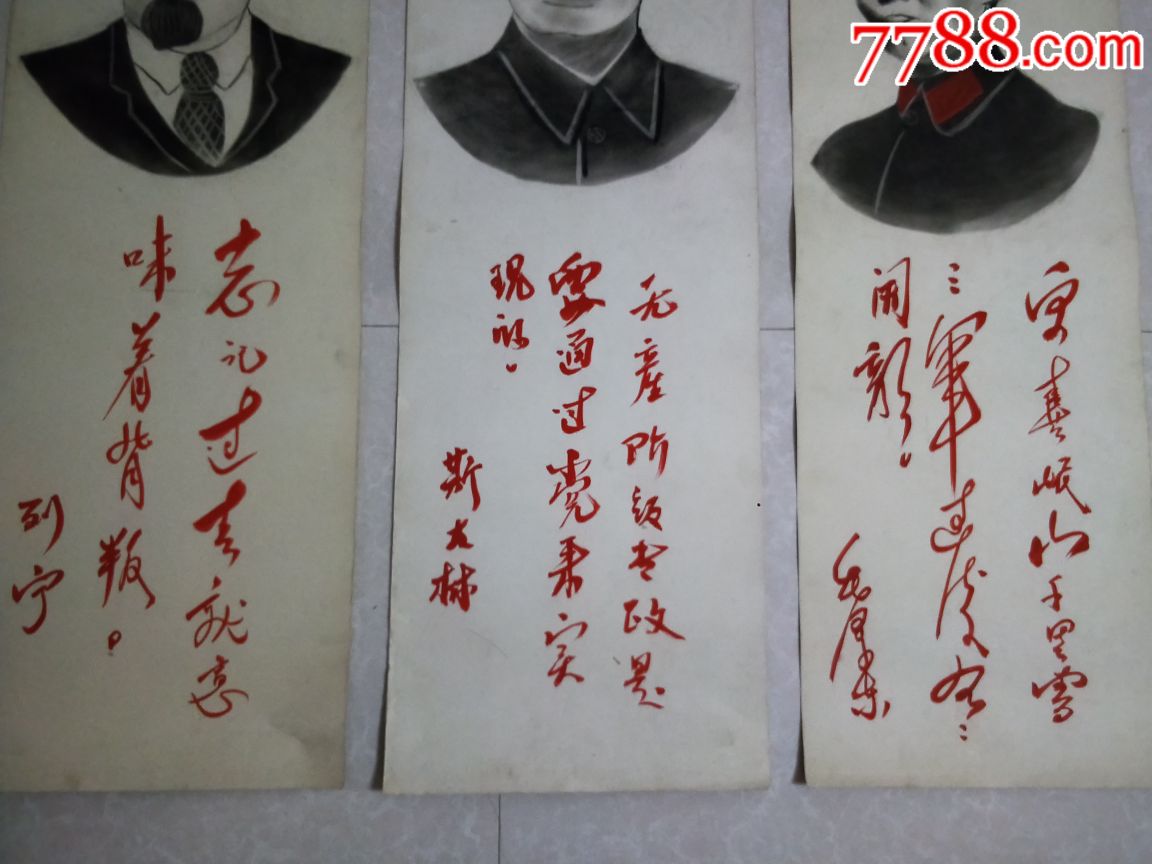 忘记过去就意
味着背叛。
列宁
无産阶级专政是
要通过党来实
现的。
斯大林
更喜岷山千里雪
三军过后尽
開颜。
毛泽东
7788.com